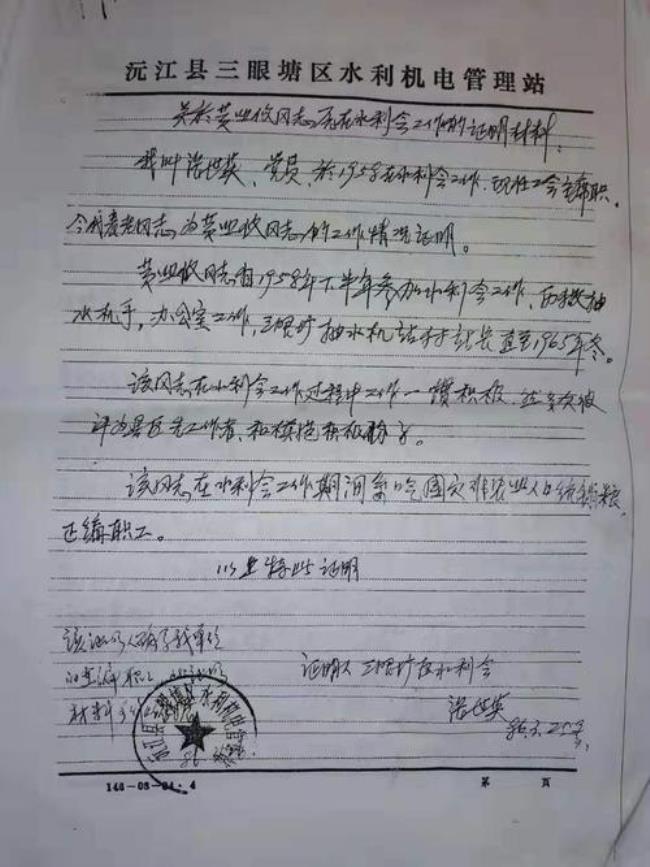 沅江县三眼塘区水利机电管理站
关於黄业俊同志在水利会工作的证明材料
我叫张世英、党员、於1958在水利会工作、现任工会主席职。
今我表老同志为黄业俊同志的工作情况证明。
黄业俊同志自1958年下半年参加水利会工作、历抽
水机手，办公室工作，三眼塘抽水机站付站长直至1965年冬。
该同志在水利会工作过程中工作一贯积极、多次被
评为县区先工作者、和模范积极份子。
该同志在水利会工作期间系吃国家非农业人口统销粮
正编职工。
以上特此证明
该证明人确系我单位
职工
材料
证明人 三眼塘区水利会
张世英
86.3.25
沅江县三眼塘区水利机电管理站
146-03-04·4
第 页